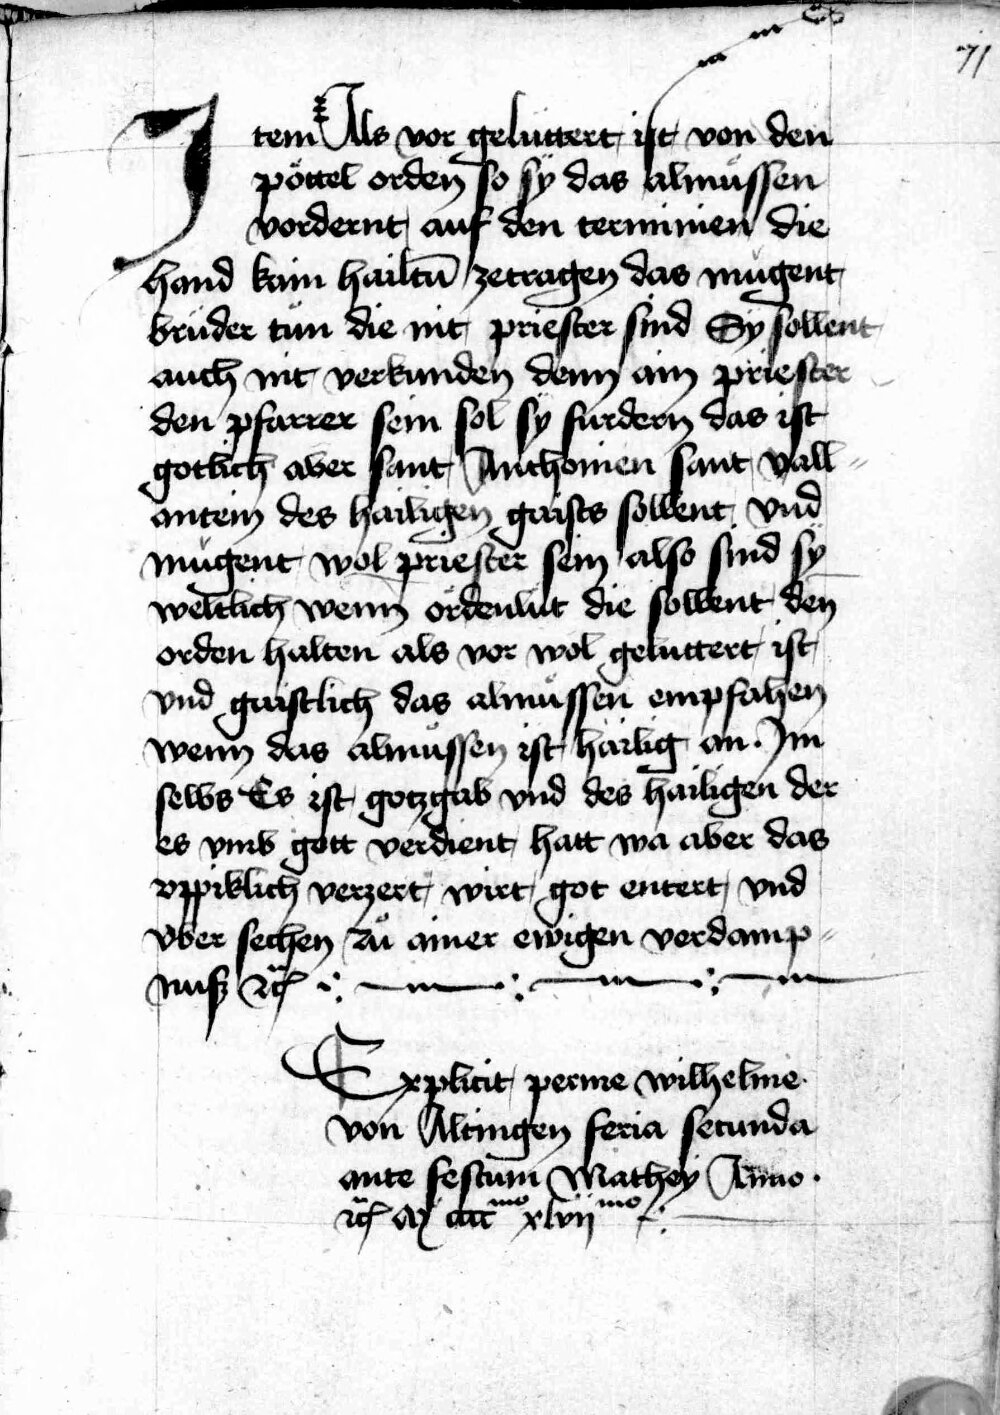 71
Item Als vor gelüttert ist von den
pöttel orden so sÿ das almůssen
vordernt auf den terminien die
hand kain hailtū zetragen das mügent
brüder tůn die nit priester sind Sy sollent
auch nit verkunden denn ain priester
den pfarrer sein sol sÿ furdern das ist
gotlich aber sant Anthonien sant vall=
antein des hailigen gaists sollent vnd
mügent wol priester sein also sind sÿ
weltlich wenn ordenlüt die sollent den
orden halten als vor wol geluttert ist
vnd gaistlich das almůssen empfahen
wenn das almůssen ist hailig an. Im
selbs Es ist gotzgab vnd des hailigen der
es vmb gott verdient hatt wa aber das
vppiklich verzert wirt got entert vnd
vber sechen zů ainer ewigen verdamp=
nusz ꝛc̃
Explicit perme wilhelme
von Altingen feria secunda
ante festum Mathey Anno.
ꝛc̃ M cccc mo xlvij mo